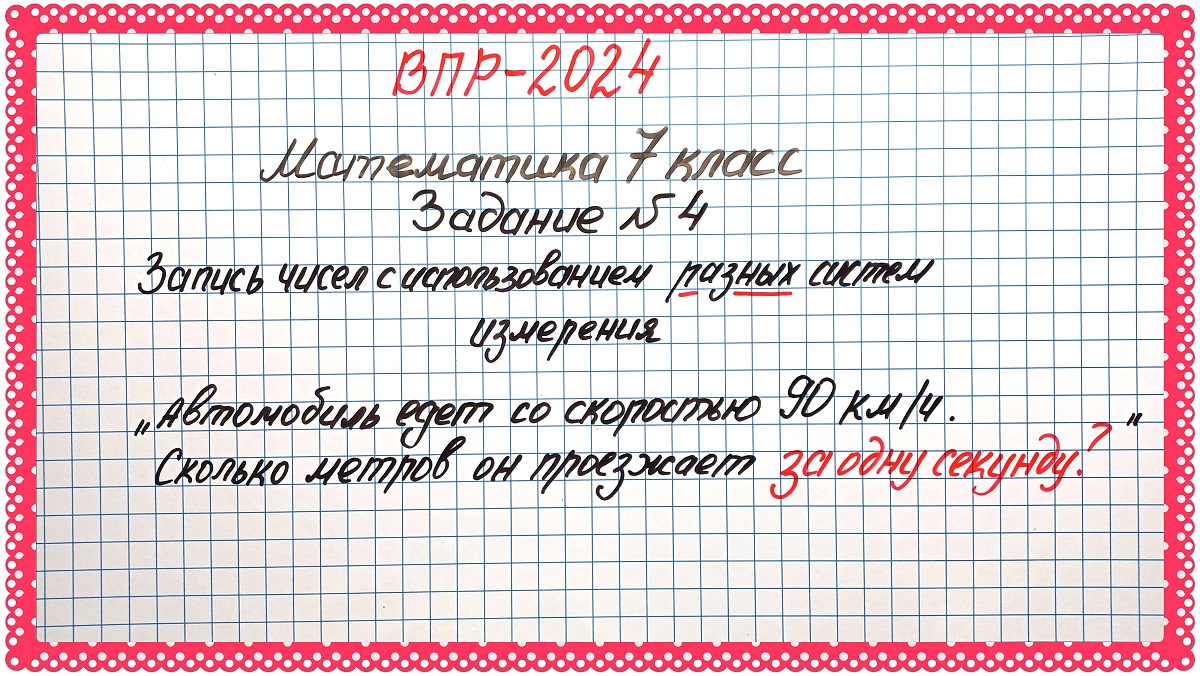 ВПР-2024
Математика 7 класс
Задание №4
Запись чисел с использованием разных систем
измерения
„Автомобиль едет со скоростью 90 км/ч.
Сколько метров он проезжает за одну секунду?"